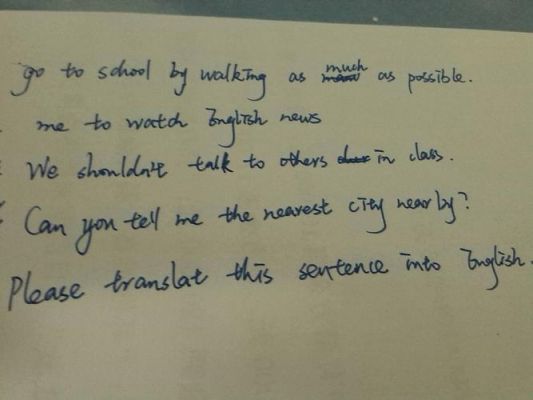 go to school by walking as much as possible.
me to watch English news
We shouldn't talk to others in class.
Can you tell me the nearest city nearby?
Please translat this sentence into English.